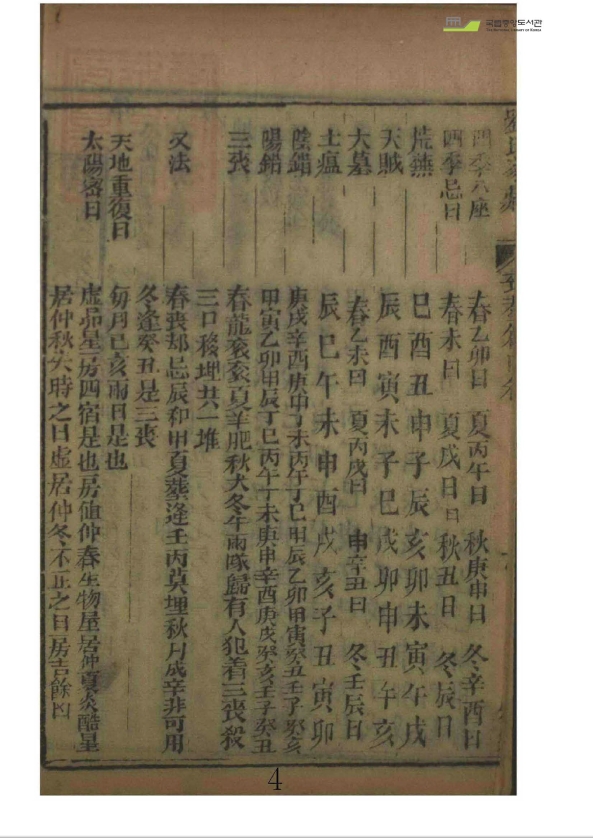 국립중앙도서관
The National Library of Korea
四季八座 春乙卯日 夏丙午日 秋庚申日 冬辛酉日
四季忌日 春未日 夏戌日 秋丑日 冬辰日
荒蕪 巳酉丑申子辰亥卯未寅午戌
天賊 辰酉寅未子巳戌卯申丑午亥
大墓 春乙未日 夏丙戌日 申辛丑日 冬壬辰日
土瘟 辰巳午未申酉戌亥子丑寅卯
陰錯 庚戌辛酉庚申丁未丙午丁巳甲辰乙卯甲寅癸丑壬子癸亥
陽錯 甲寅乙卯甲辰丁巳丙午丁未庚申辛酉庚戌癸亥壬子癸丑
三喪 春龍 夏羊肥秋犬冬牛兩隊歸有人犯着三喪殺
三口移埋共一堆
又法 春喪却忌辰和甲夏葬逢壬丙莫埋秋月戌辛非可用
冬逢癸丑是三喪
天地重復日 每月己亥兩日是也
太陽密日 虛昴星房四宿是也房値仲春生物星居仲夏炎酷星
居仲秋 時之日虛居仲冬不正之日房吉餘凶
4